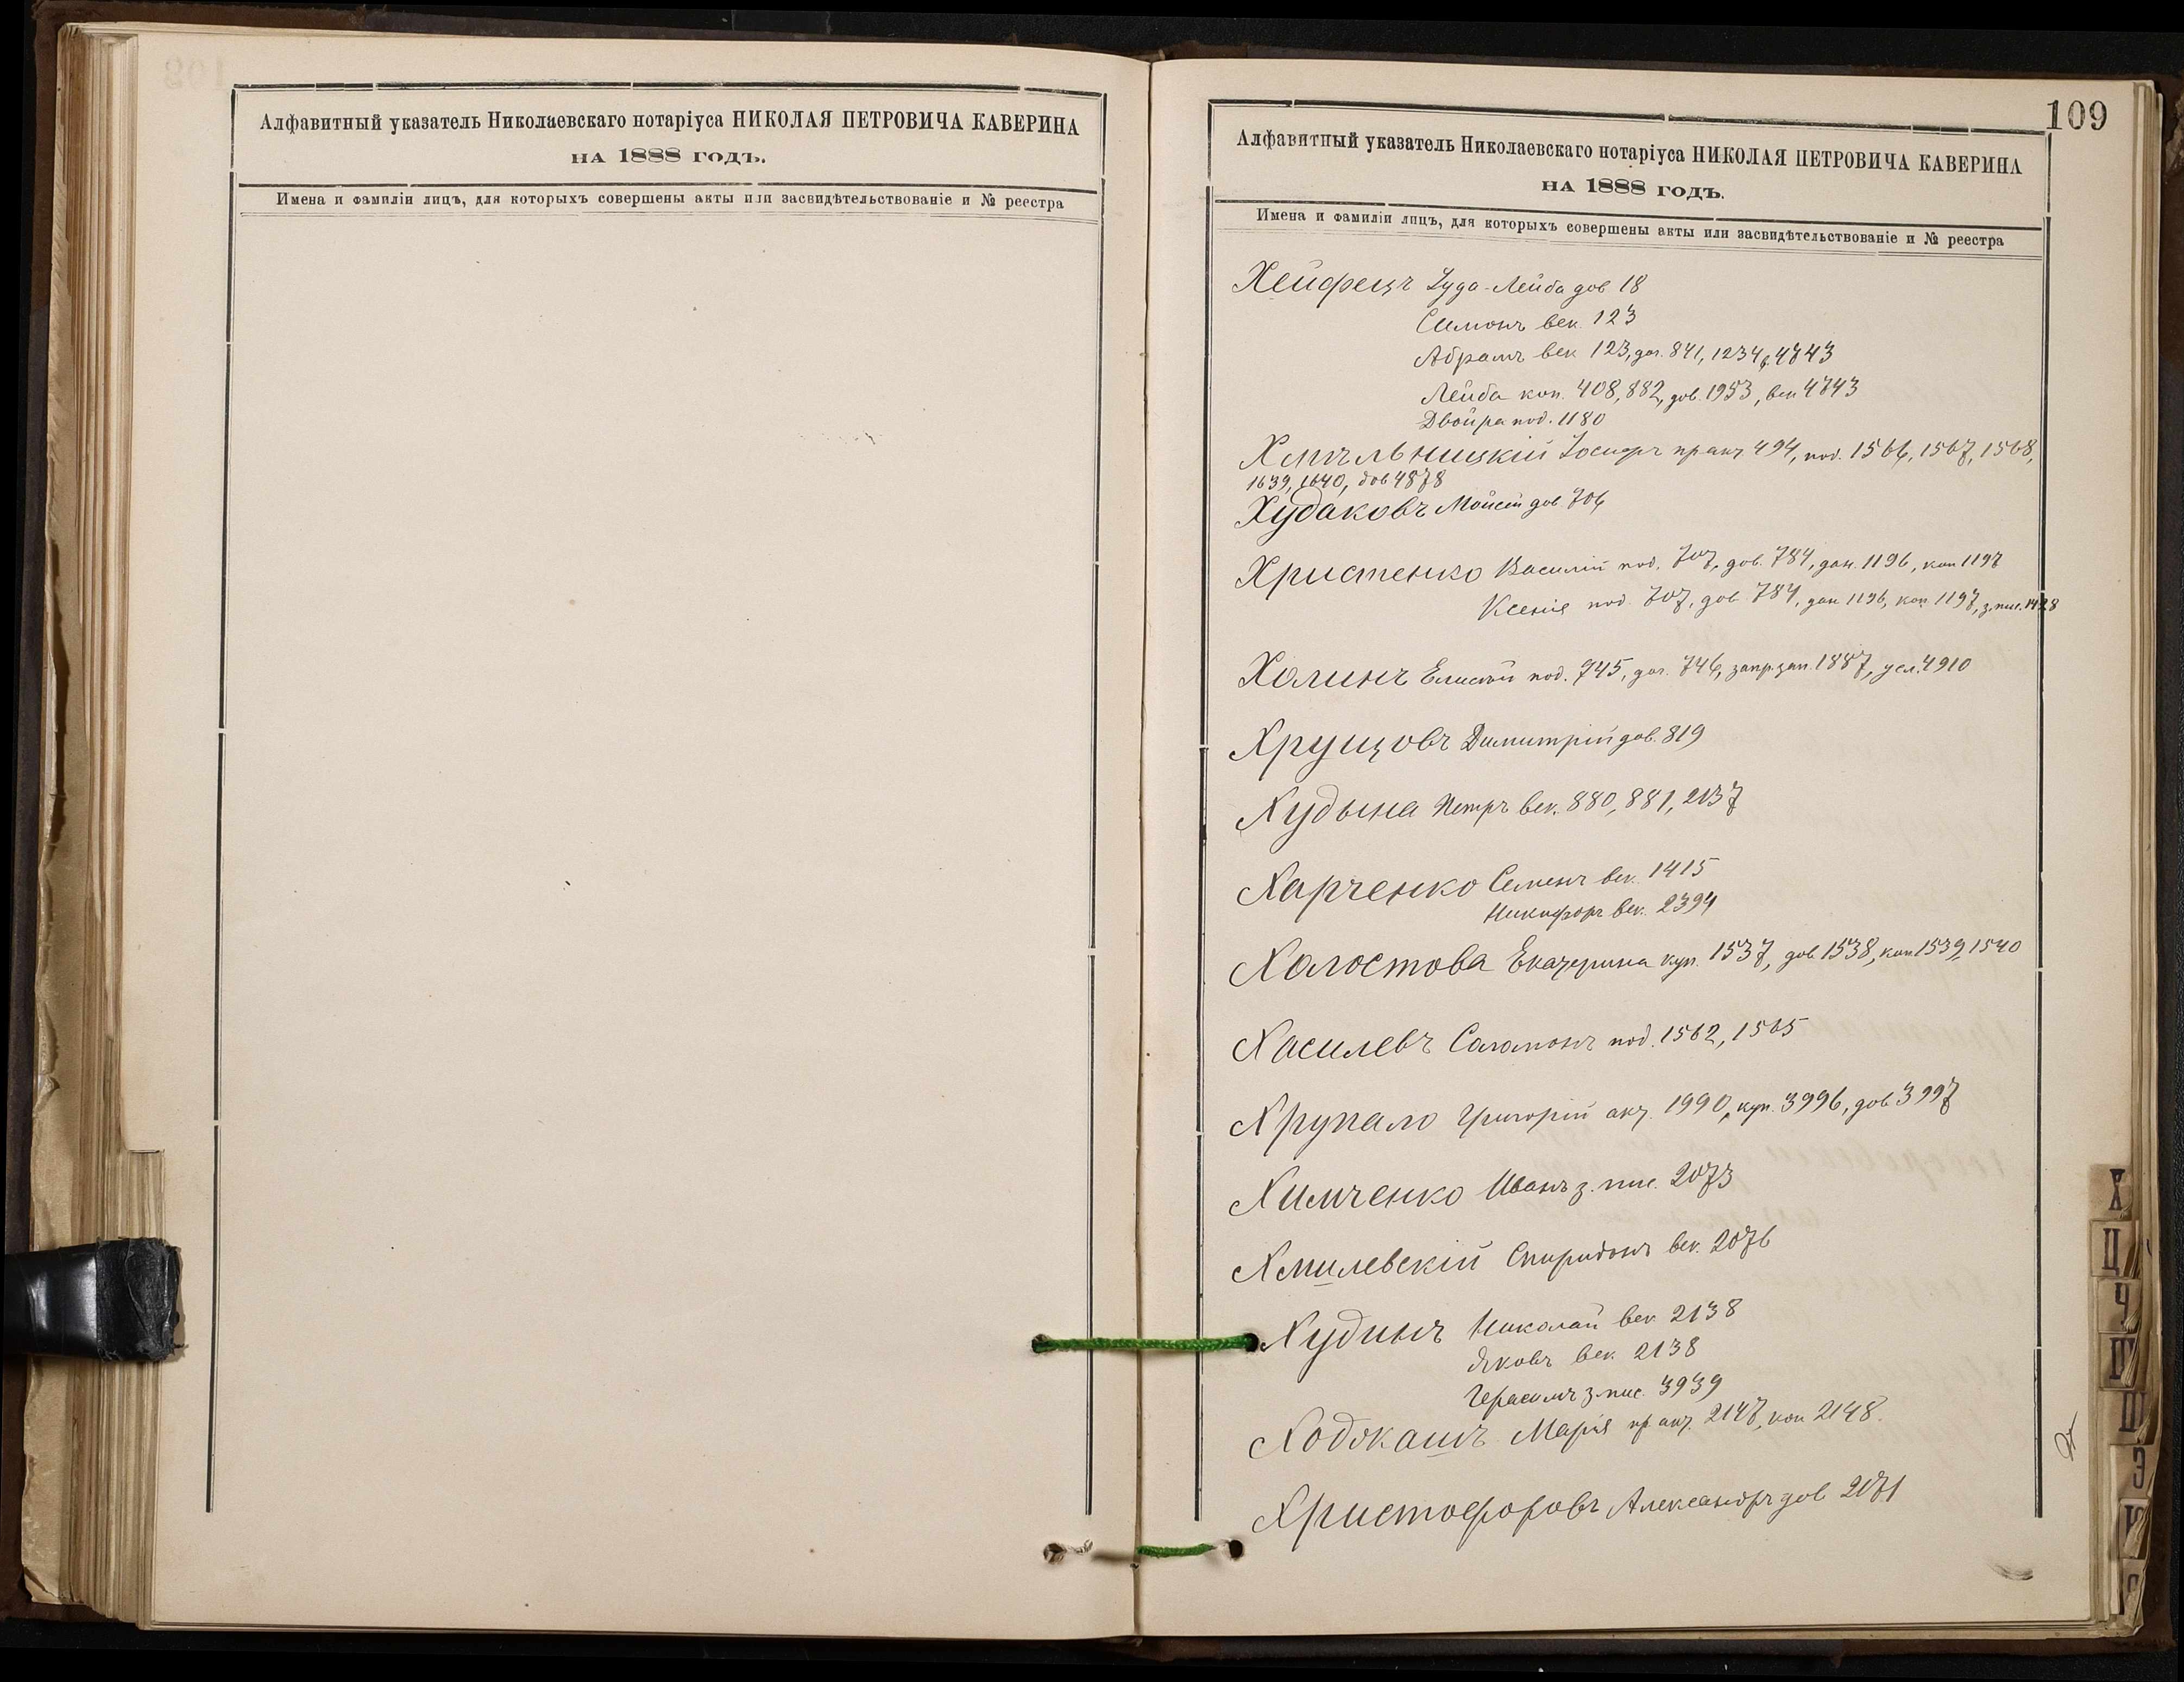 Алфавитный указатель Николаевскаго нотаріуса НИКОЛАЯ ПЕТРОВИЧА КАВЕРИНА
НА 1888 ГОДЪ.
Имена и фамиліи лицъ, для которыхъ совершены акты или засвидѣтельствованіе и № реестра
109
Алфавитный указатель Николаевскаго нотаріуса НИКОЛАЯ ПЕТРОВИЧА КАВЕРИНА
НА 1888 ГОДЪ.
Имена и фамиліи лицъ, для которыхъ совершены акты или засвидѣтельствованіе и № реестра
Хейфецъ Іуда-Лейба дов 18
Симонъ век. 123
Абрамъ век 123, дог. 841, 1234, 4743
Лейба коп. 408, 882, дов. 1953, век 4743
Двойра под. 1180
Хмѣльницкій Іосифъ пр акт 494, под. 1566, 1567, 1568,
1639, 1640, дов 4878
Худаковъ Мойсей дов 706
Христенко Василій под. 707, дов. 784, дан. 1196, коп 1197
Ксенія под. 707, дов 784, дан 1196, коп 1197, з. пис. 1428
Холинъ Елисей под. 745, дог. 746, запр. зап. 1887, усл. 4910
Хрущовъ Димитрій дов. 819
Худына Петръ век. 880, 881, 2137
Харченко Семенъ век. 1415
Никифоръ век. 2394
Холостова Екатерина куп. 1537, дов 1538, коп 1539, 1540
Хасилевъ Соломонъ под. 1562, 1565
Хрупало Григорій акт. 1990, куп. 3996, дов 3997
Химченко Иванъ з. пис. 2073
Хмилевскій Спиридонъ век. 2076
Худинъ Николай век 2138
Яковъ век. 2138
Герасимъ з. пис. 3939
Ходжашъ Марія пр акт. 2147, коп 2148.
Христофоровъ Александръ дов 2071
Х
Ц
Ч
Ш
Щ
Э